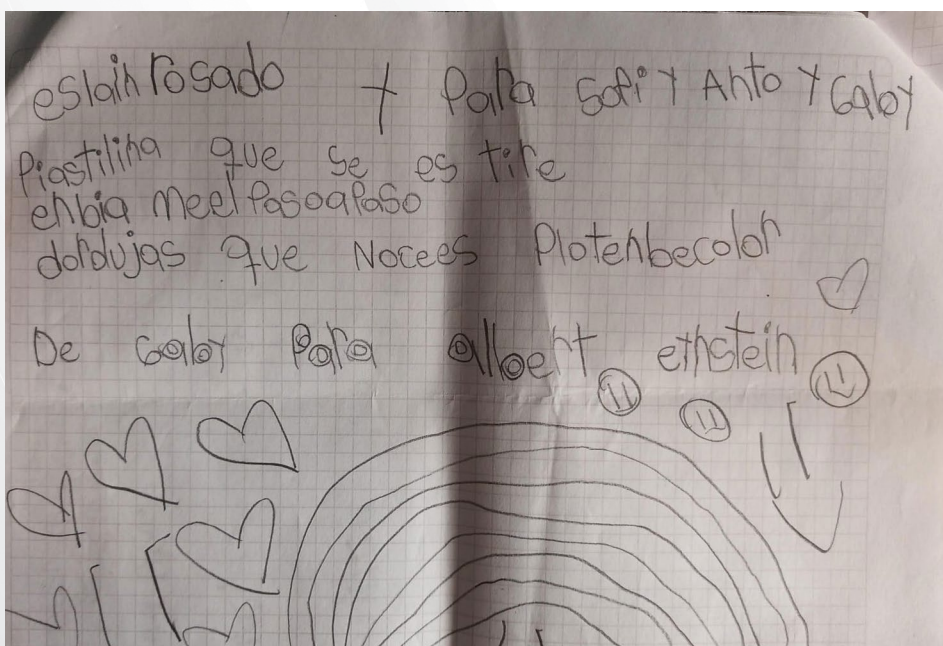 eslain rosado + Para Sofi Y Anto Y Gaby
Plastilina que se es tire
enbia meel Pasoapaso
dordujas que Nocees Plotenbecolor
De Gaby Para alloent einstein